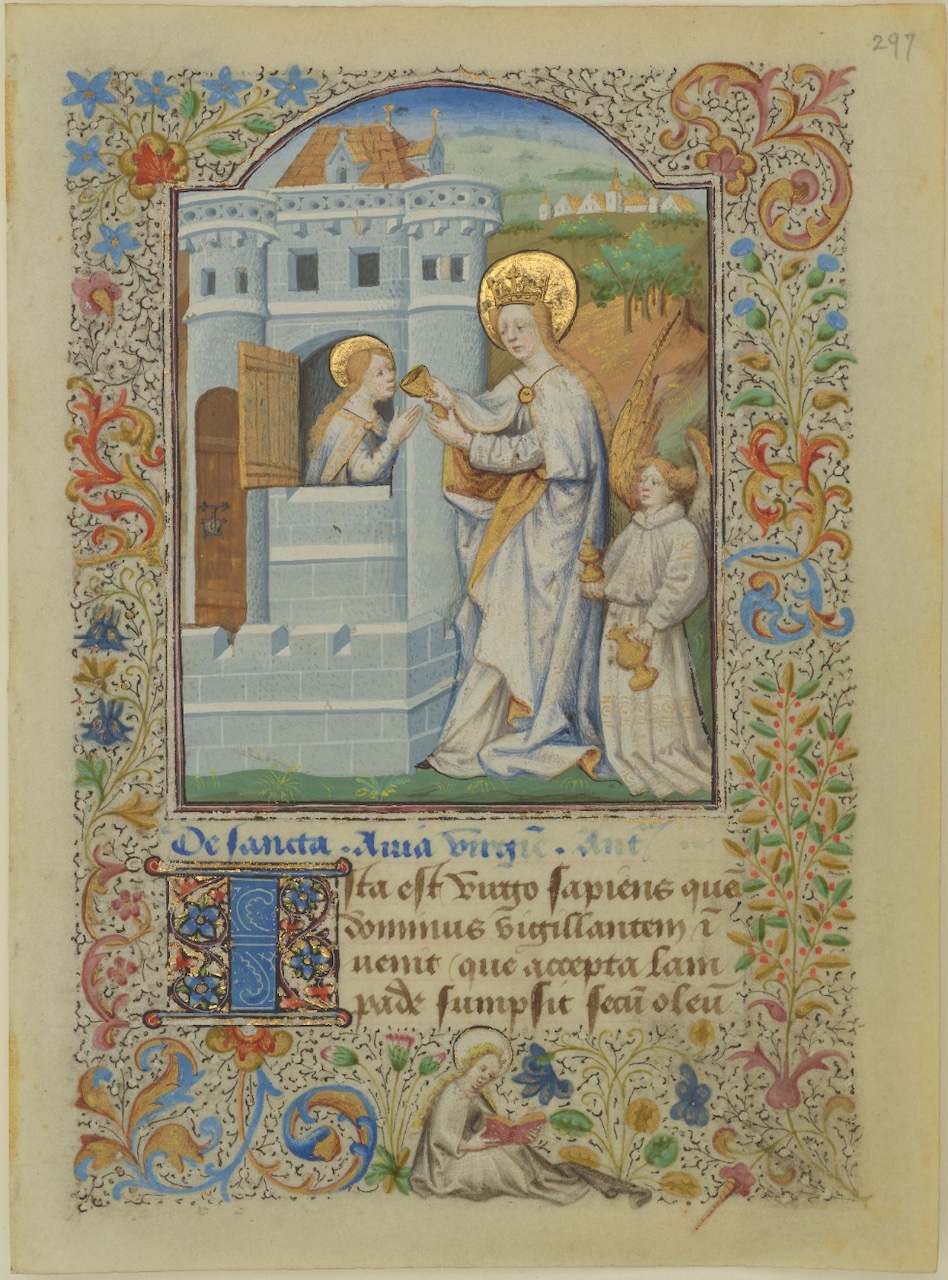 297
De sancta . Auia virgīe . Ant
Ista est virgo sapiens quē
dominus vigillantem ī
uenit quē accepta lam
pade sumpsit secū oleū